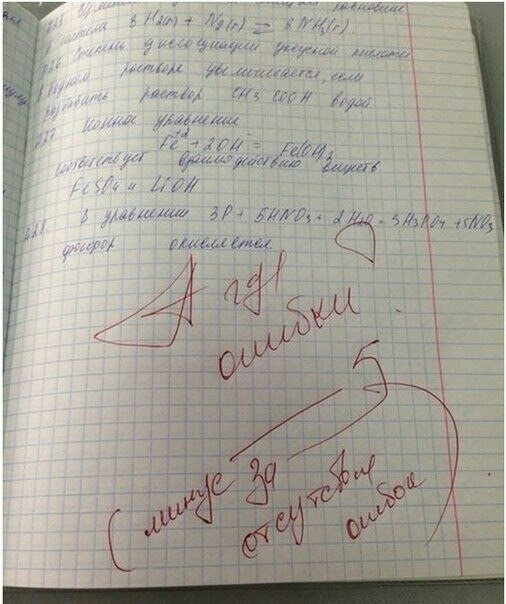 системе 3 H2(г) + N2(г) ⇄ 2 NH3(г).
A26 Степень диссоциации уксусной кислоты
в водном растворе увеличивается, если
разбавить раствор CH3COOH водой
A27 Ионное уравнение
Fe+2 + 2OH- = Fe(OH)2
соответствует взаимодействию веществ
FeSO4 и LiOH
A28. В уравнении 3P + 5HNO3 + 2H2O = 3H3PO4 + 5NO
фосфор окисляется
А где
ошибки
?
5
(минус за
отсутствие
ошибок